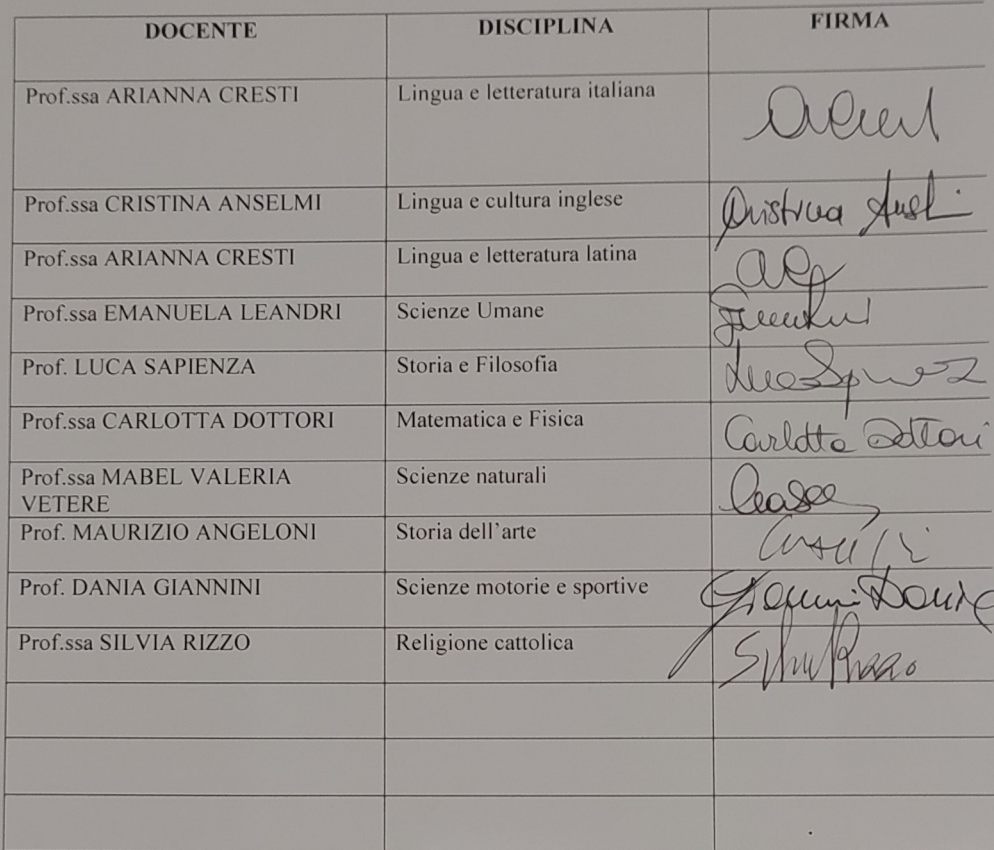 DOCENTE DISCIPLINA FIRMA
Prof.ssa ARIANNA CRESTI Lingua e letteratura italiana
Prof.ssa CRISTINA ANSELMI Lingua e cultura inglese
Prof.ssa ARIANNA CRESTI Lingua e letteratura latina
Prof.ssa EMANUELA LEANDRI Scienze Umane
Prof. LUCA SAPIENZA Storia e Filosofia
Prof.ssa CARLOTTA DOTTORI Matematica e Fisica Carlotta Dottori
Prof.ssa MABEL VALERIA Scienze naturali
VETERE
Prof. MAURIZIO ANGELONI Storia dell'arte
Prof. DANIA GIANNINI Scienze motorie e sportive Giannini Dania
Prof.ssa SILVIA RIZZO Religione cattolica